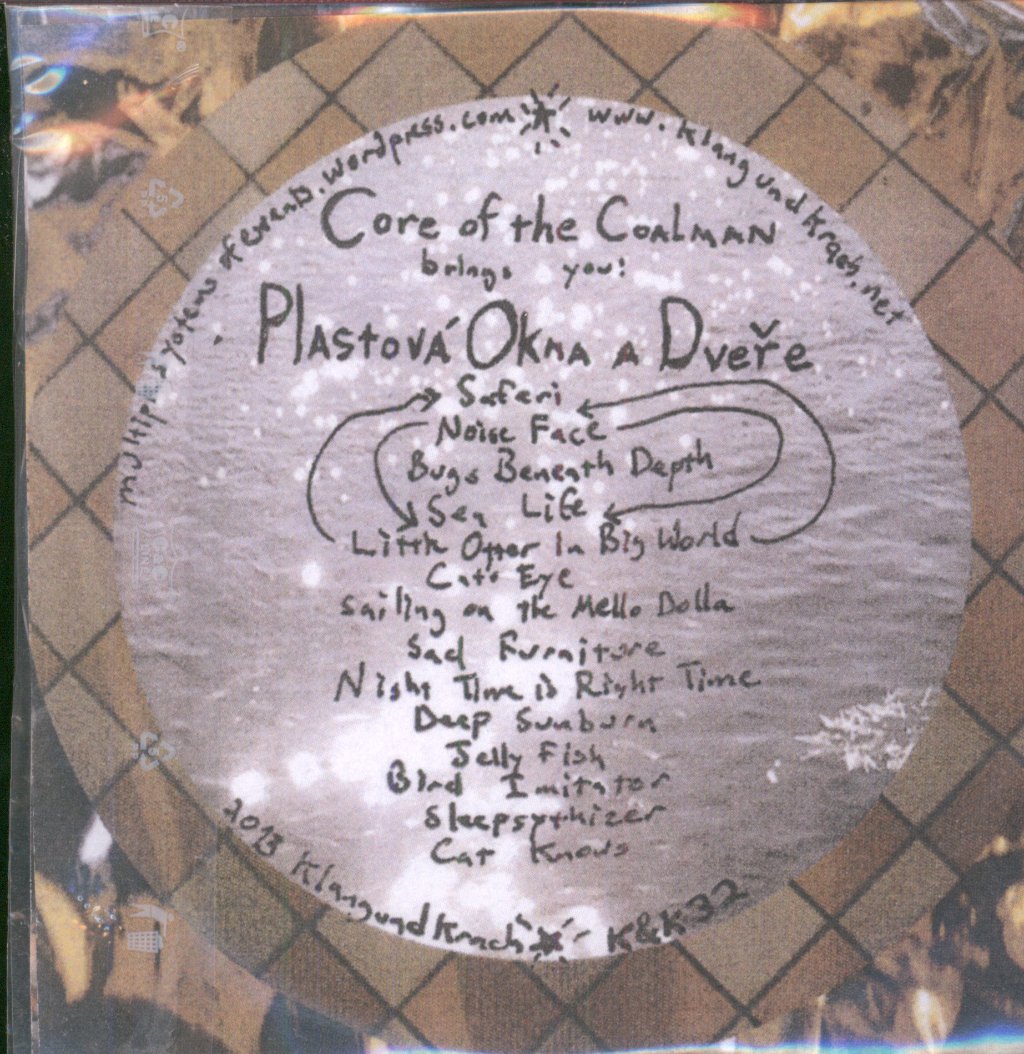 multiplesystemsofevents.wordpress.com
www.klangundkrach.net
Core of the Coalman
brings you:
Plastová Okna a Dveře
Safari
Noise Face
Bugs Beneath Depth
Sea Life
Little Otter in Big World
Cat's Eye
Sailing on the Mello Dolla
Sad Furniture
Night Time is Right Time
Deep Sunburn
Jelly Fish
Bird Imitator
Sleepsythizer
Cat Knows
2013 Klangundkrach - K&K32